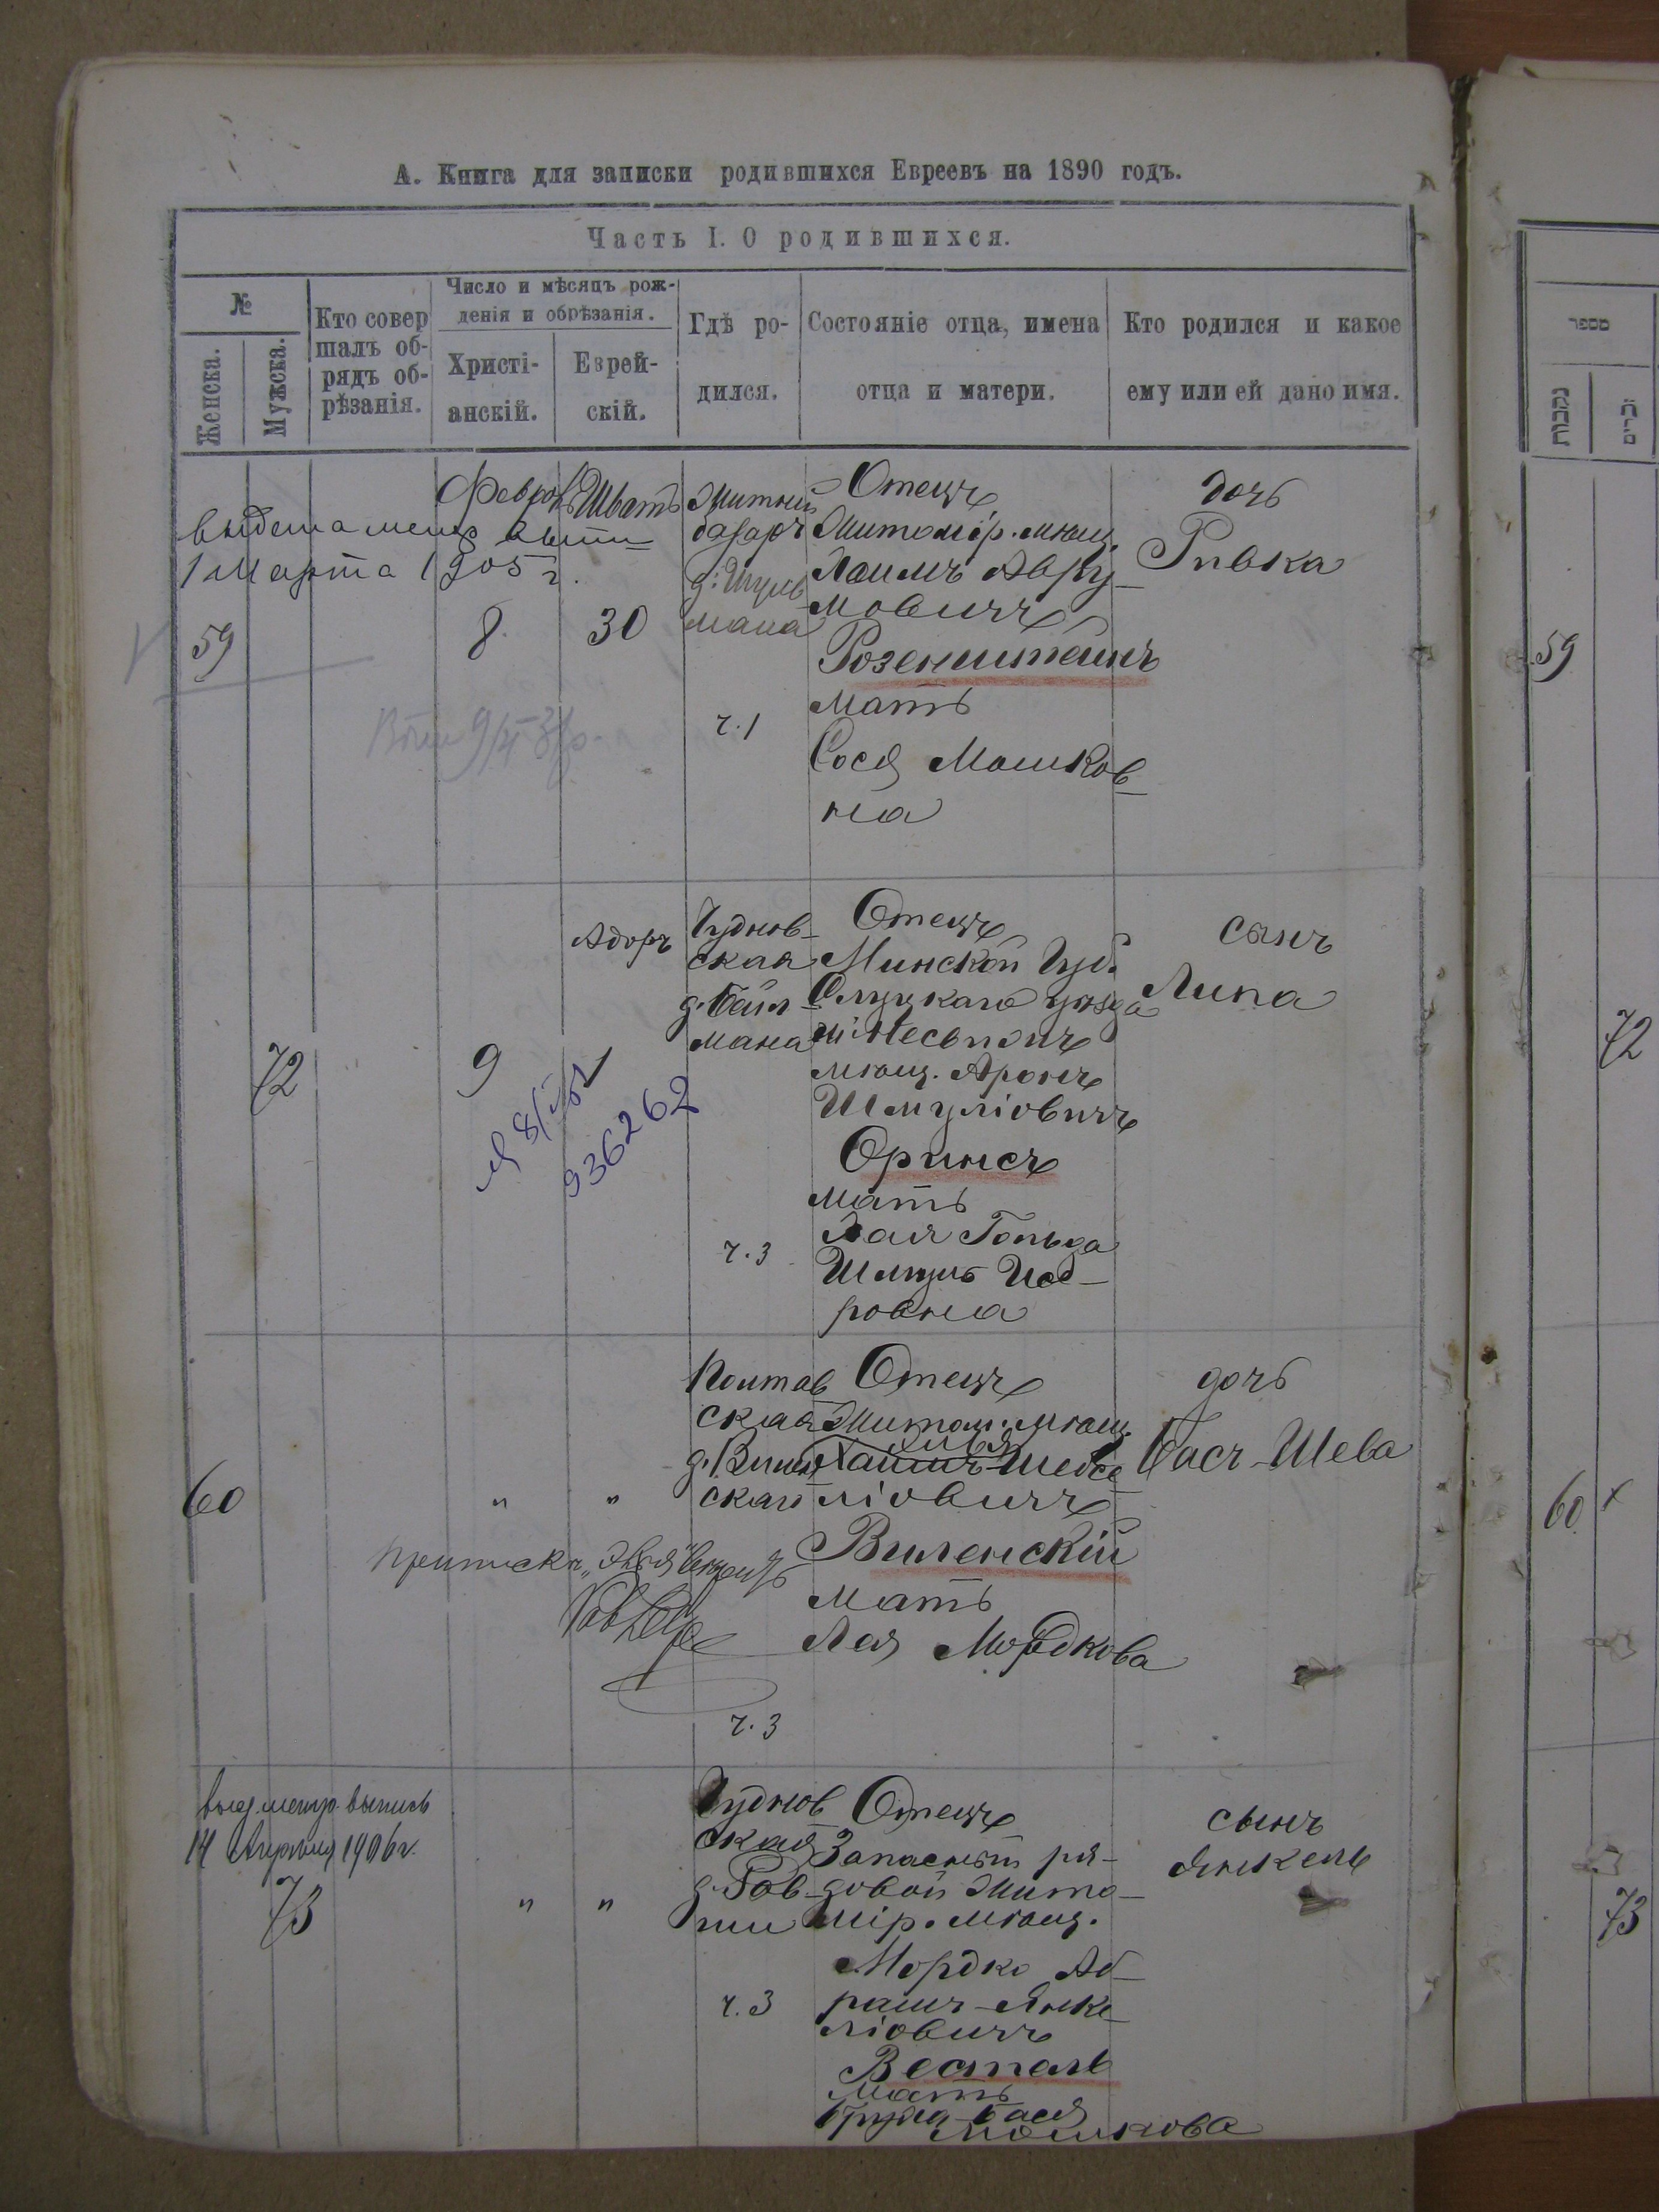 А. Книга для записки родившихся Евреевъ на 1890 годъ.
Часть I. О родившихся.
№
Женска.
Мужска.
Кто совер
шалъ об-
рядъ об-
рѣзанія.
Число и мѣсяцъ рож-
денія и обрѣзанія.
Христі-
анскій.
Еврей-
скій.
Гдѣ ро-
дился.
Состояніе отца, имена
отца и матери.
Кто родился и какое
ему или ей дано имя.
выдена метр
1 Марта 1905 г.
59
Феврал
8
Шватъ
30
Житный
базаръ
д. Шуль
мана
ч. 1
Отецъ
Житомір. мѣщ.
Хаимъ Авру-
мовичъ
Розенштейнъ
мать
Сося Мошков-
на
дочь
Ривка
72
9
936262
Адоръ
Чуднов-
ская
д. Бейл-
мана
ч. 3
Отецъ
Минской Губ.
Слуцкаго уѣзда
м. Несвижъ
мѣщ. Аронъ
Шмуліовичъ
Оринсъ
мать
Хая Гольда
Шмуль
ровна
сынъ
Липа
60
"
"
Полтав
ская
д. Вилен
скаго
ч. 3
Отецъ
Житом. мѣщ.
Хаимъ
ліовичъ
Виленскій
мать
Лея Мордкова
дочь
Бася-Шева
выд. метр. выпись
14 Апрѣля 1906 г.
73
"
"
Чуднов
ская
ч. 3
Отецъ
Запасный ря-
довой Жито-
мір. мѣщ.
Мордко Аб-
рамъ-Янке-
ліовичъ
Весталь
мать
Бася
Мошкова
сынъ
Янкель
מספר
נקבות
זכרים
59
72
60
73